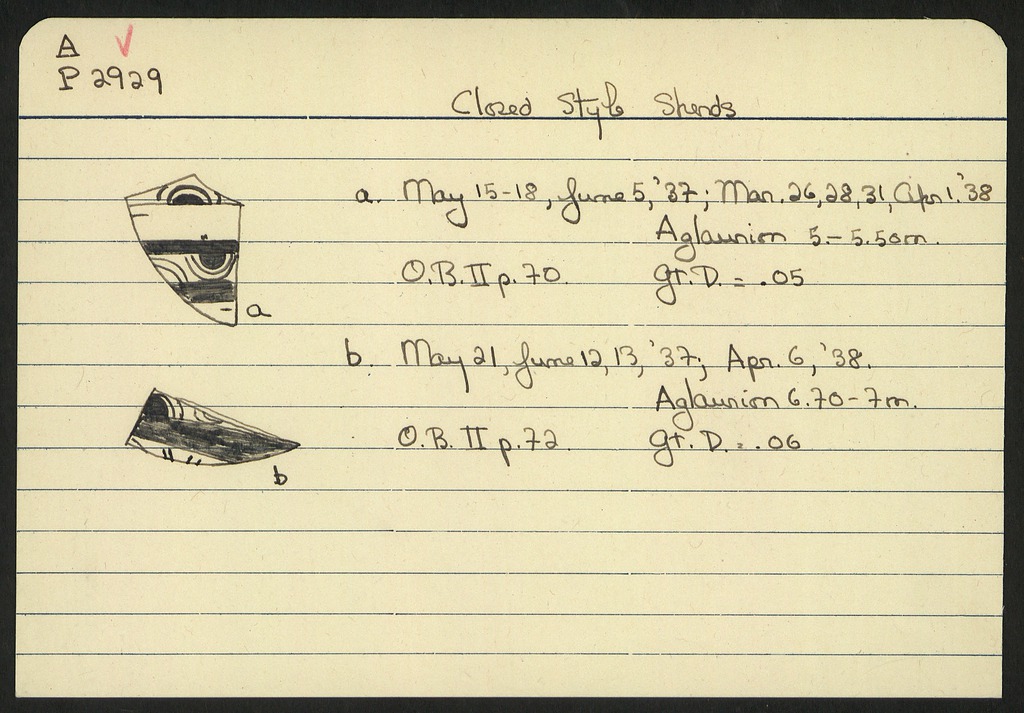 A ✓
P 2929
Closed Style Sherds
a. May 15-18, June 5, '37; Mar. 26, 28, 31, Apr 1. '38
Aglaurion 5.-5.50m.
O.B. II p. 70. Gr. D. = .05
a
b. May 21, June 12, 13, '37; Apr. 6, '38.
Aglaurion 6.70-7m.
O.B. II p. 72. Gr. D. = .06
b